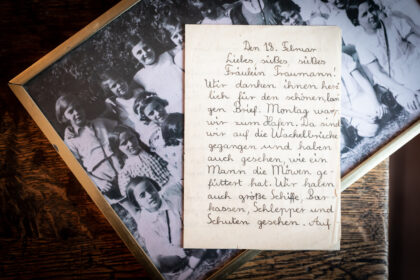 Den 18. Februar
Liebes, süßes, süßes
Fräulein Traumann.
Wir danken ihnen herz
lich für den schönen, lan
gen Brief. Montag war
wir zum Hafen. Da sind
wir auf die Wackelbrücke
gegangen und haben
auch gesehen, wie ein
Mann die Möwen ge-
füttert hat. Wir haben
auch große Schiffe, Bar
kassen, Schlepper und
Schuten gesehen. Auf